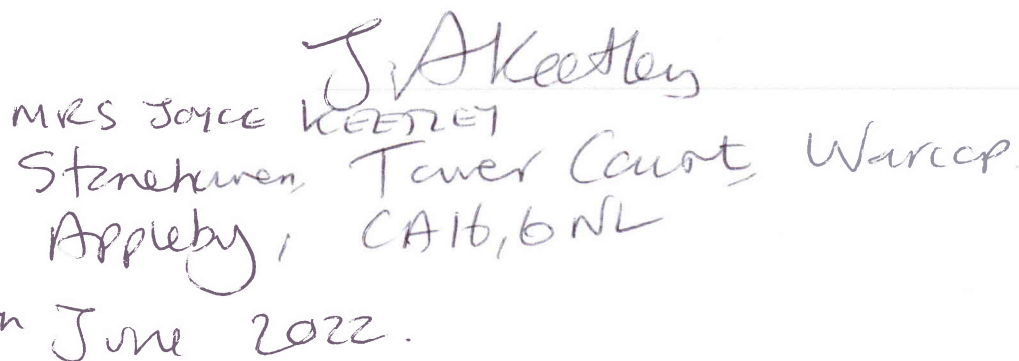 J. A Keetley
MRS JOYCE KEETLEY
Stonehaven, Tower Court, Warcop.
Appleby, CA16, 6NL
June 2022.